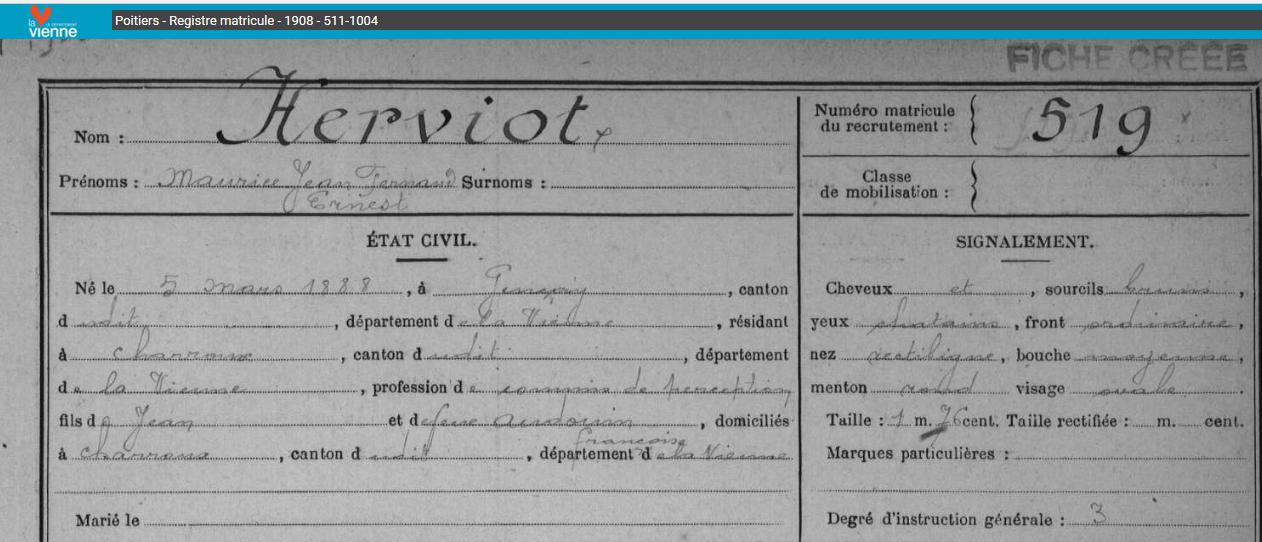 la vienne LE DÉPARTEMENT
Poitiers - Registre matricule - 1908 - 511-1004
FICHE CRÉÉE
Nom : Herviot
Prénoms : Maurice Jean Fernand Surnoms :
Ernest
Numéro matricule
du recrutement : 519
Classe
de mobilisation :
ÉTAT CIVIL.
Né le 5 mars 1888, à Gençay, canton
dudit, département de la Vienne, résidant
à Charroux, canton dudit, département
de la Vienne, profession de commis de perception
fils de Jean et de feue Audouin, domiciliés
Françoise
à Charroux, canton dudit, département de la Vienne
Marié le
SIGNALEMENT.
Cheveux et, sourcils bruns,
yeux chatains, front ordinaire,
nez rectiligne, bouche moyenne,
menton rond visage ovale.
Taille : 1 m. 76 cent. Taille rectifiée : m. cent.
Marques particulières :
Degré d'instruction générale : 3